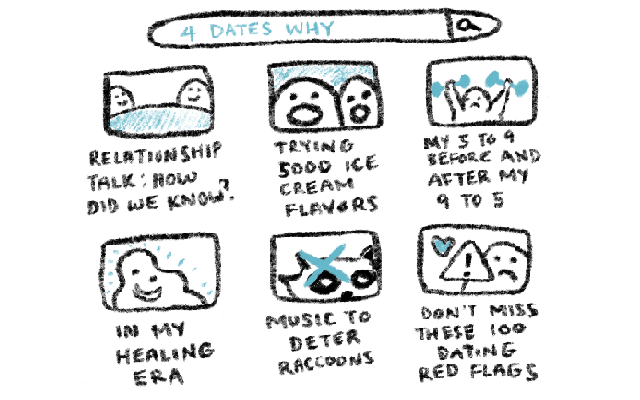 4 DATES WHY
RELATIONSHIP
TALK: HOW
DID WE KNOW?
TRYING
5000 ICE
CREAM
FLAVORS
MY 5 TO 9
BEFORE AND
AFTER MY
9 TO 5
IN MY
HEALING
ERA
MUSIC TO
DETER
RACCOONS
DON'T MISS
THESE 100
DATING
RED FLAGS